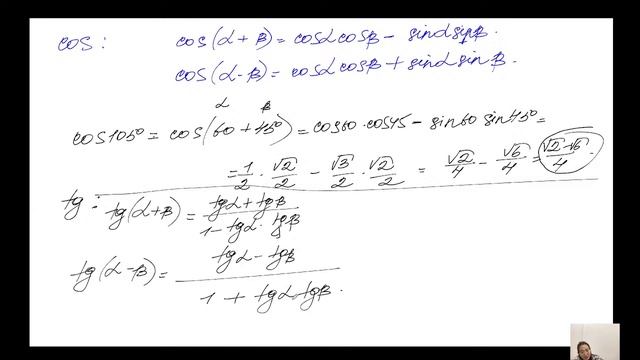 cos: cos(α+β) = cosα cosβ − sinα sinβ.
cos(α−β) = cosα cosβ + sinα sinβ.
α β
cos105° = cos(60+45°) = cos60·cos45 − sin60 sin45° =
= 1/2 · √2/2 − √3/2 · √2/2 = √2/4 − √6/4 = (√2−√6)/4
tg: tg(α+β) = (tgα + tgβ)/(1 − tgα · tgβ)
tg(α−β) = (tgα − tgβ)/(1 + tgα tgβ).